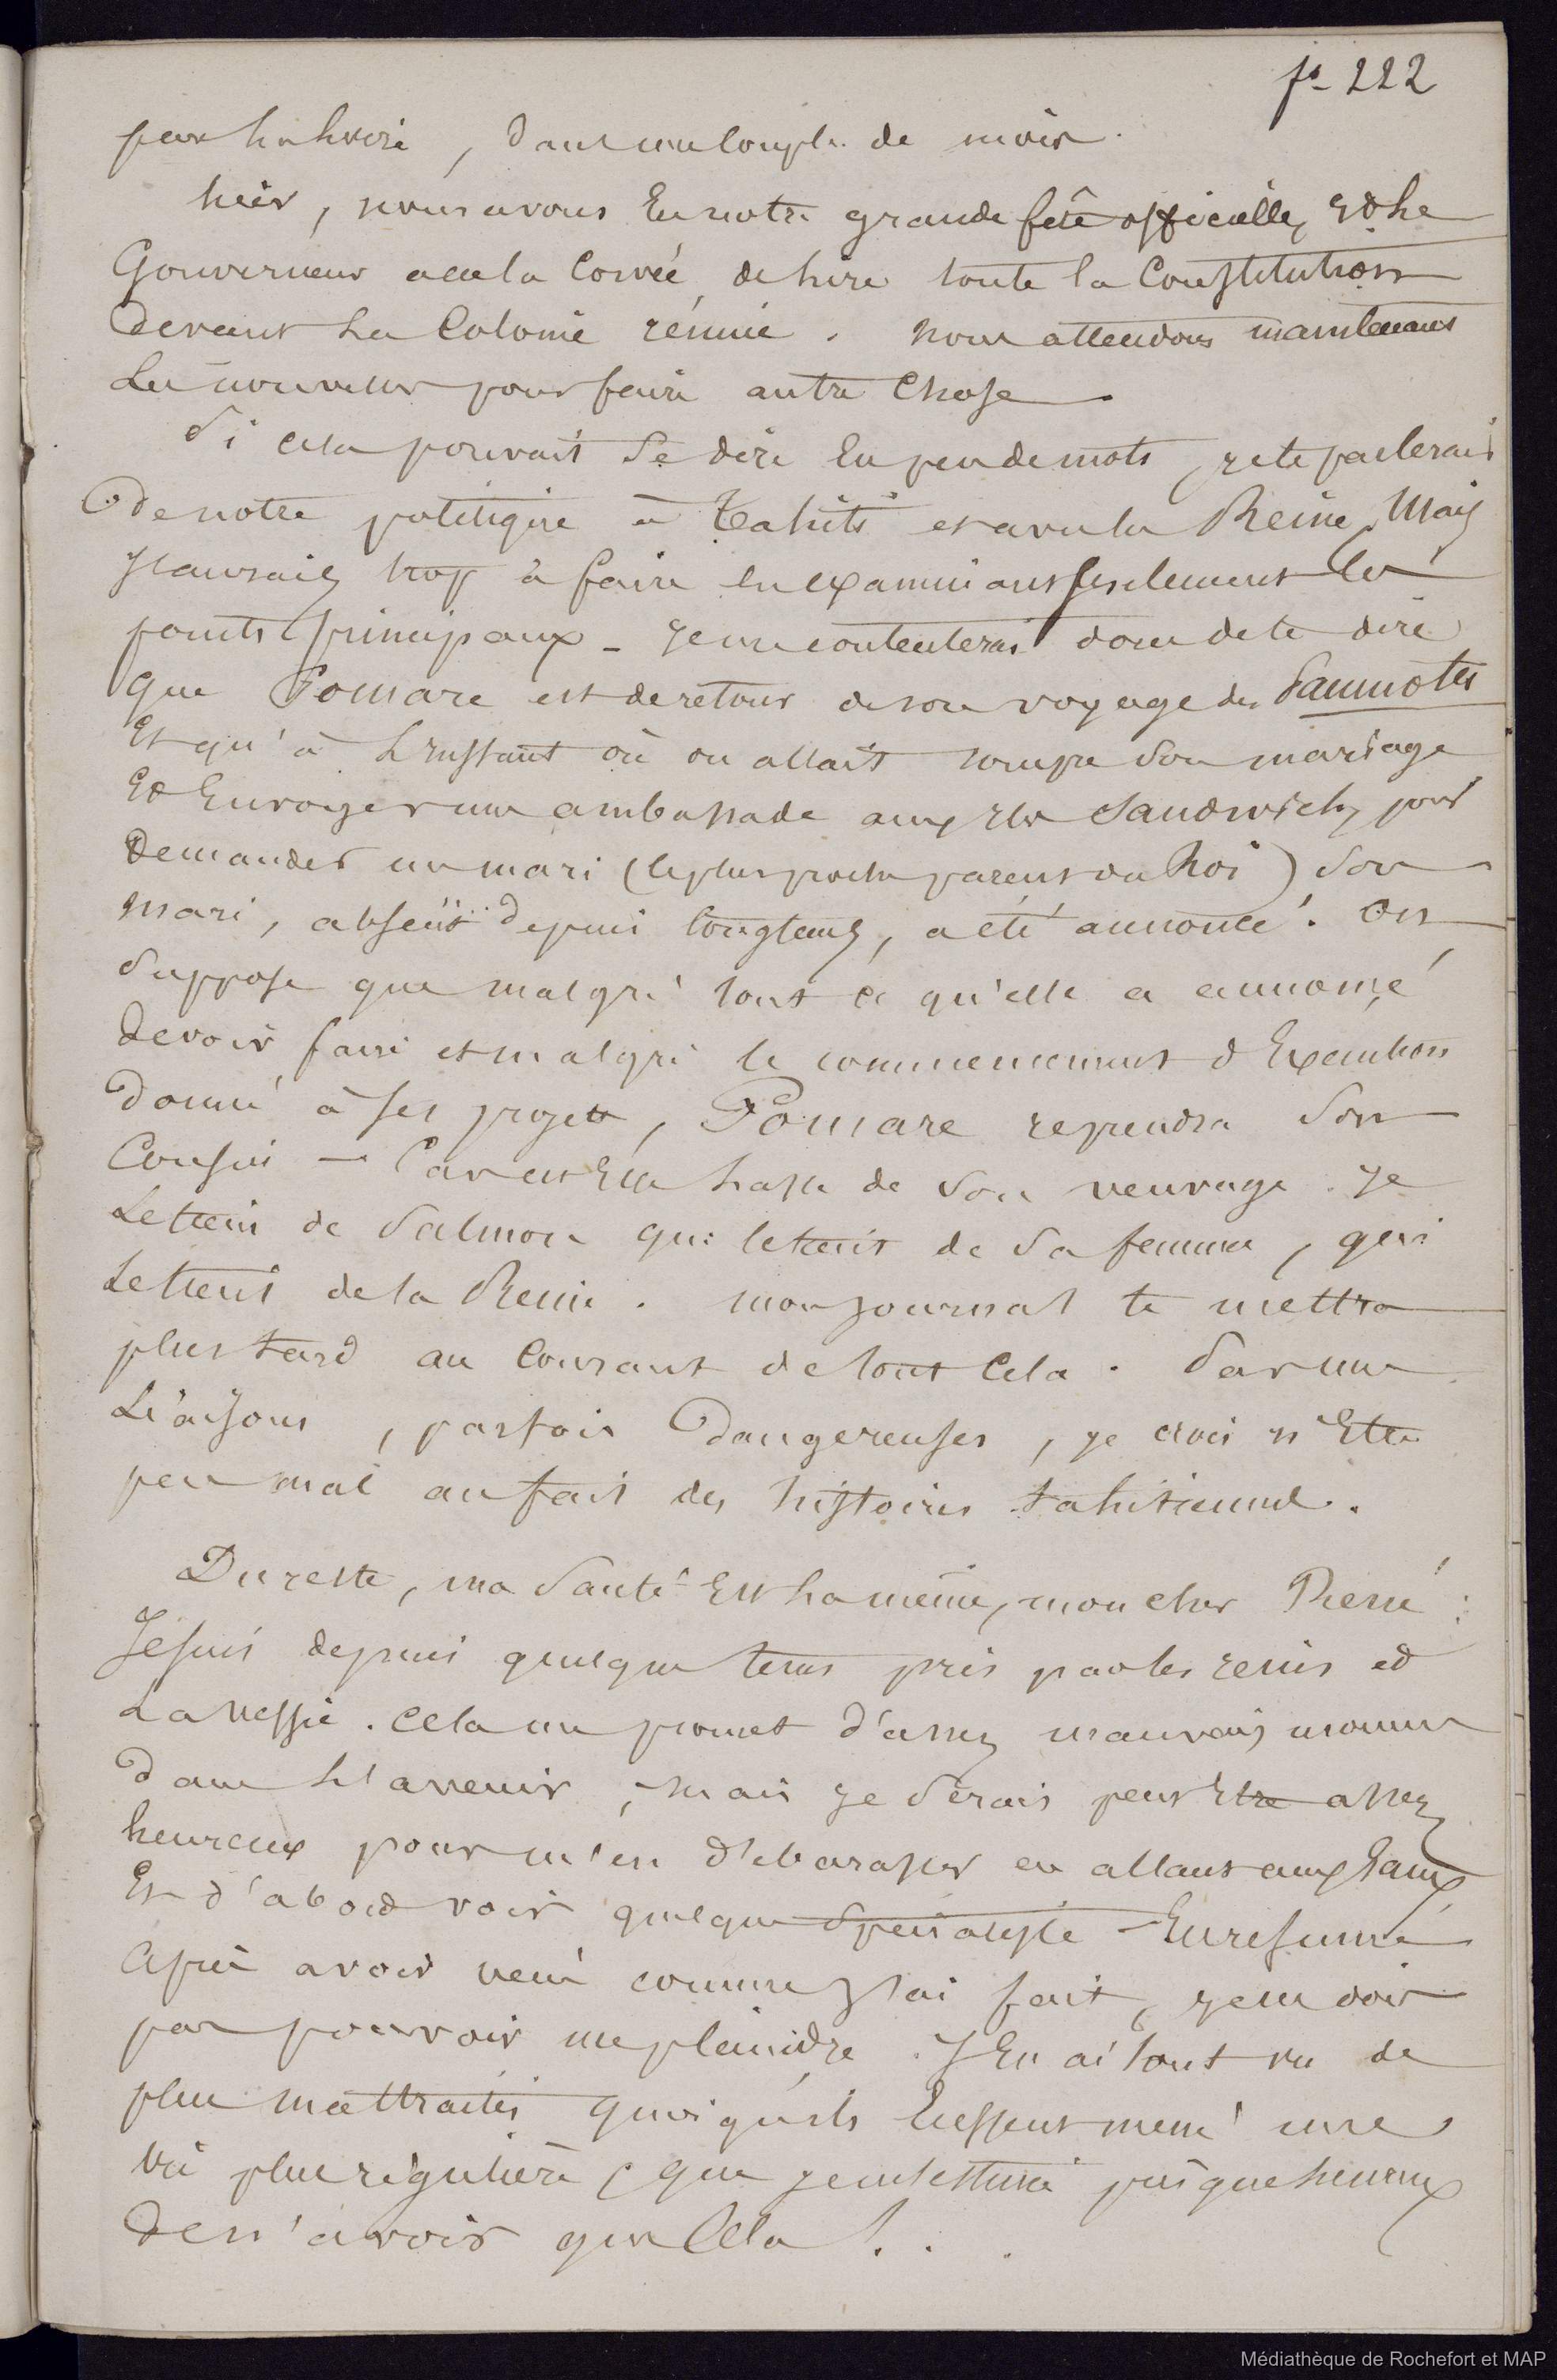 fo 222
dans un couple de mois.
hier, nous avons Eu notre grande fête officielle, Et Le
Gouverneur a eu la Corvée de lire toute la Constitution
devant La Colonie réunie. nous attendons maintenant
du nouveau pour faire autre chose.
Si cela pouvait Se dire En peu de mots, je te parlerais
de notre politique à Tahiti et avec la Reine, Mais
J'aurais trop à faire En Examinant seulement les
points principaux _ je me contenterai donc de te dire
que Pomare est de retour de son voyage des Paumotes
Et qu'à L'instant où on allait rompre Son mariage
Et Envoyer une ambassade aux iles Sandwich, pour
demander un mari (le plus proche parent du Roi) Son
mari, absent depuis longtems, a été annoncé. On
Suppose que malgré tout ce qu'elle a annoncé
devoir faire et malgré le commencement d'Execution
donné à ses projets, Pomare reprendra Son
Cousin — Car Elle de Son veuvage. je
Le tiens de Salmon qui le tient de Sa femme, qui
Le tient de la Reine. mon journal te mettra
plus tard au Courant de tout Cela. Par mes
Liaisons, parfois dangereuses, je crois n'Etre
pas mal au fait des histoires tahitiennes.
Du reste, ma Santé Est La même, mon cher Pierre :
Je suis depuis quelque tems pris par les reins et
La vessie. Cela me promet d'assez mauvais momens
dans L'avenir, mais je Serais peut Etre assez
heureux pour m'en débarasser en allant aux Eaux
Et d'abord voir quelque Spécialiste — En resumé
après avoir vécu comme J'ai fait, je ne dois
pas pouvoir me plaindre. J'En ai tant vu de
plus maltraités quoiqu'ils Eussent mené une
vie plus régulière, que je m'estime presque heureux
de n'avoir que Cela !. .
Médiathèque de Rochefort et MAP